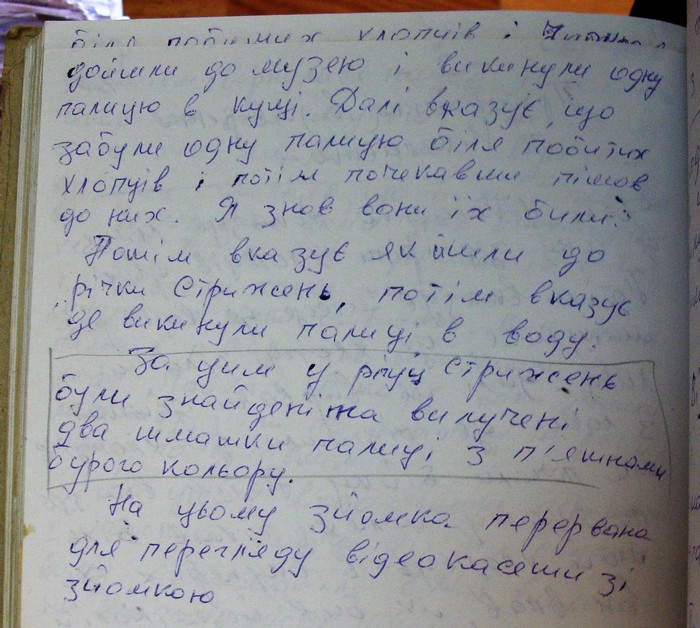 біля побитих хлопців і
дойшли до музею і викинули одну
палицю в кущі. Далі вказує, що
забули одну палицю біля побитих
хлопців і потім почекавши пішов
до них. Я знов вони їх били.
Потім вказує як йшли до
річки Стрижень, потім вказує
де викинули палиці в воду.
За цим у ріці Стрижень
були знайдені та вилучені
два шматки палиці з п'ятнами
бурого кольору.
На цьому зйомка перервана
для перегляду відеокасети зі
зйомкою